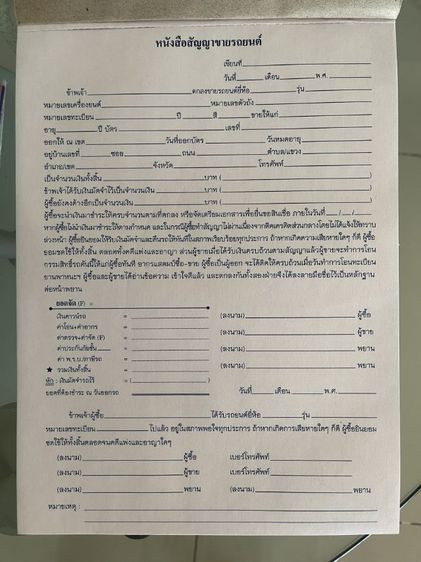 หนังสือสัญญาขายรถยนต์
เขียนที่
วันที่ เดือน พ.ศ.
ข้าพเจ้า ตกลงขายรถยนต์ยี่ห้อ รุ่น
หมายเลขเครื่องยนต์ หมายเลขตัวถัง
หมายเลขทะเบียน ปี สี ขายให้แก่
อายุ ปี บัตร เลขที่
ออกให้ ณ เขต วันที่ออกบัตร วันหมดอายุ
อยู่บ้านเลขที่ ซอย ถนน ตำบล/แขวง
อำเภอ/เขต จังหวัด โทรศัพท์
เป็นจำนวนเงินทั้งสิ้น บาท ( )
ข้าพเจ้าได้รับเงินมัดจำไว้เป็นจำนวนเงิน บาท ( )
ผู้ซื้อยังคงค้างอีกเป็นจำนวนเงิน บาท ( )
ผู้ซื้อจะนำเงินมาชำระให้ครบจำนวนตามที่ตกลง หรือจัดเตรียมเอกสารเพื่อยื่นขอสินเชื่อ ภายในวันที่ / /
หากผู้ซื้อไม่นำเงินมาชำระให้ตามกำหนด และในกรณีผู้ซื้อทำสัญญาไม่ผ่านเนื่องจากติดเครดิตส่วนกลางโดยไม่ได้แจ้งให้ทราบ
ล่วงหน้า ผู้ซื้อยินยอมให้ริบเงินมัดจำและคืนรถให้ทันทีในสภาพเรียบร้อยทุกประการ ถ้าหากเกิดความเสียหายใดๆ ก็ดี ผู้ซื้อ
ยอมชดใช้ให้ทั้งสิ้น ตลอดทั้งคดีแพ่งและอาญา ส่วนผู้ขายเมื่อได้รับเงินครบถ้วนตามสัญญาแล้วผู้ขายจะทำการโอน
กรรมสิทธิ์รถคันนี้ให้แก่ผู้ซื้อทันที อากรแสตมป์ซื้อ-ขาย ผู้ซื้อเป็นผู้ออก จะได้คิดให้ครบถ้วนเมื่อวันทำการโอนทะเบียน
ยานพาหนะฯ ผู้ซื้อและผู้ขายได้อ่านข้อความ เข้าใจดีแล้ว และตกลงกันทั้งสองฝ่ายจึงได้ลงลายมือชื่อไว้เป็นหลักฐาน
ต่อหน้าพยาน
ยอดจัด (F) =
เงินดาวน์รถ =
ค่าโอน+ค่าอากร =
ค่าตรวจ+ค่าจัด (F) =
ค่าประกันภัยชั้น =
ค่า พ.ร.บ./ภาษีรถ =
★ รวมเงินทั้งสิ้น =
หัก : เงินมัดจำรถไว้ = ( )
ยอดที่ต้องชำระ ณ วันออกรถ
(ลงนาม) ผู้ซื้อ
(ลงนาม) ผู้ขาย
(ลงนาม) พยาน
(ลงนาม) พยาน
วันที่ เดือน พ.ศ.
ข้าพเจ้าผู้ซื้อ ได้รับรถยนต์ยี่ห้อ รุ่น
หมายเลขทะเบียน ไปแล้ว อยู่ในสภาพพอใจทุกประการ ถ้าหากเกิดการเสียหายใดๆ ก็ดี ผู้ซื้อยินยอม
ชดใช้ให้ทั้งสิ้นตลอดจนคดีแพ่งและอาญาใดๆ
(ลงนาม) ผู้ซื้อ เบอร์โทรศัพท์
(ลงนาม) ผู้ขาย เบอร์โทรศัพท์
(ลงนาม) พยาน (ลงนาม) พยาน
หมายเหตุ :